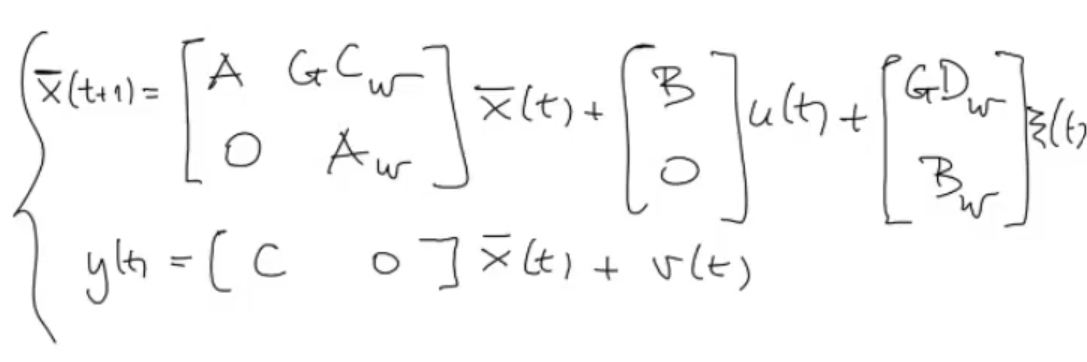 x̄(t+1) = [A GC_w; 0 A_w] x̄(t) + [B; 0] u(t) + [GD_w; B_w] ξ(t)
y(t) = [C 0] x̄(t) + v(t)